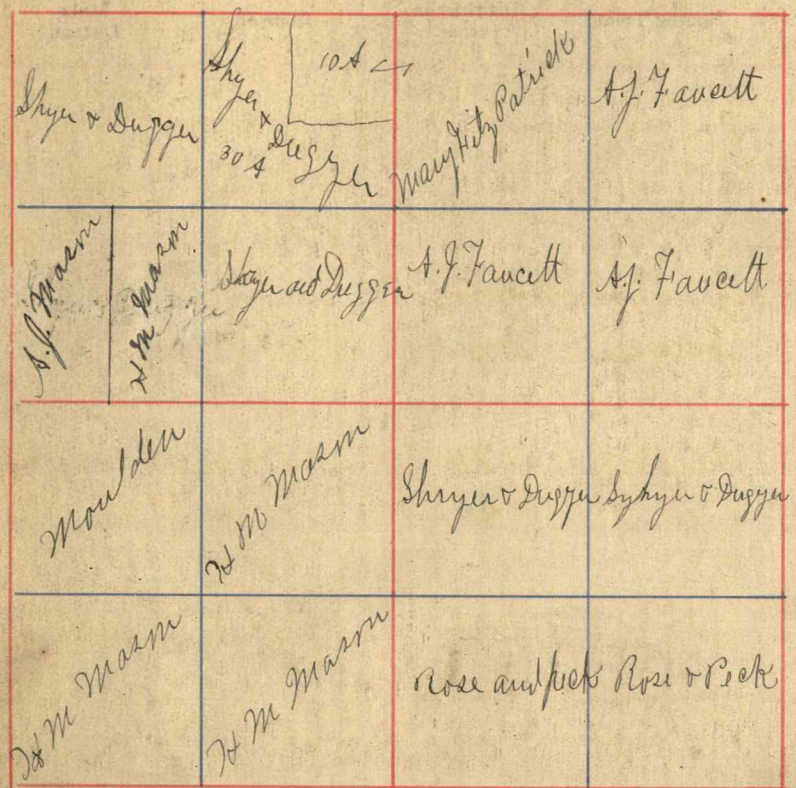 Shyer & Dugger
Shyer & Dugger
30 A
10 A
Mary Fitz Patrick
A.J. Faucett
A.J. Mason
H M Mason
Shyer and Dugger
A.J. Faucett
A.J. Faucett
Moulden
H M Mason
Shryer & Dugger
Syhyer & Dugger
H M Mason
H M Mason
Rose and peck
Rose & Peck